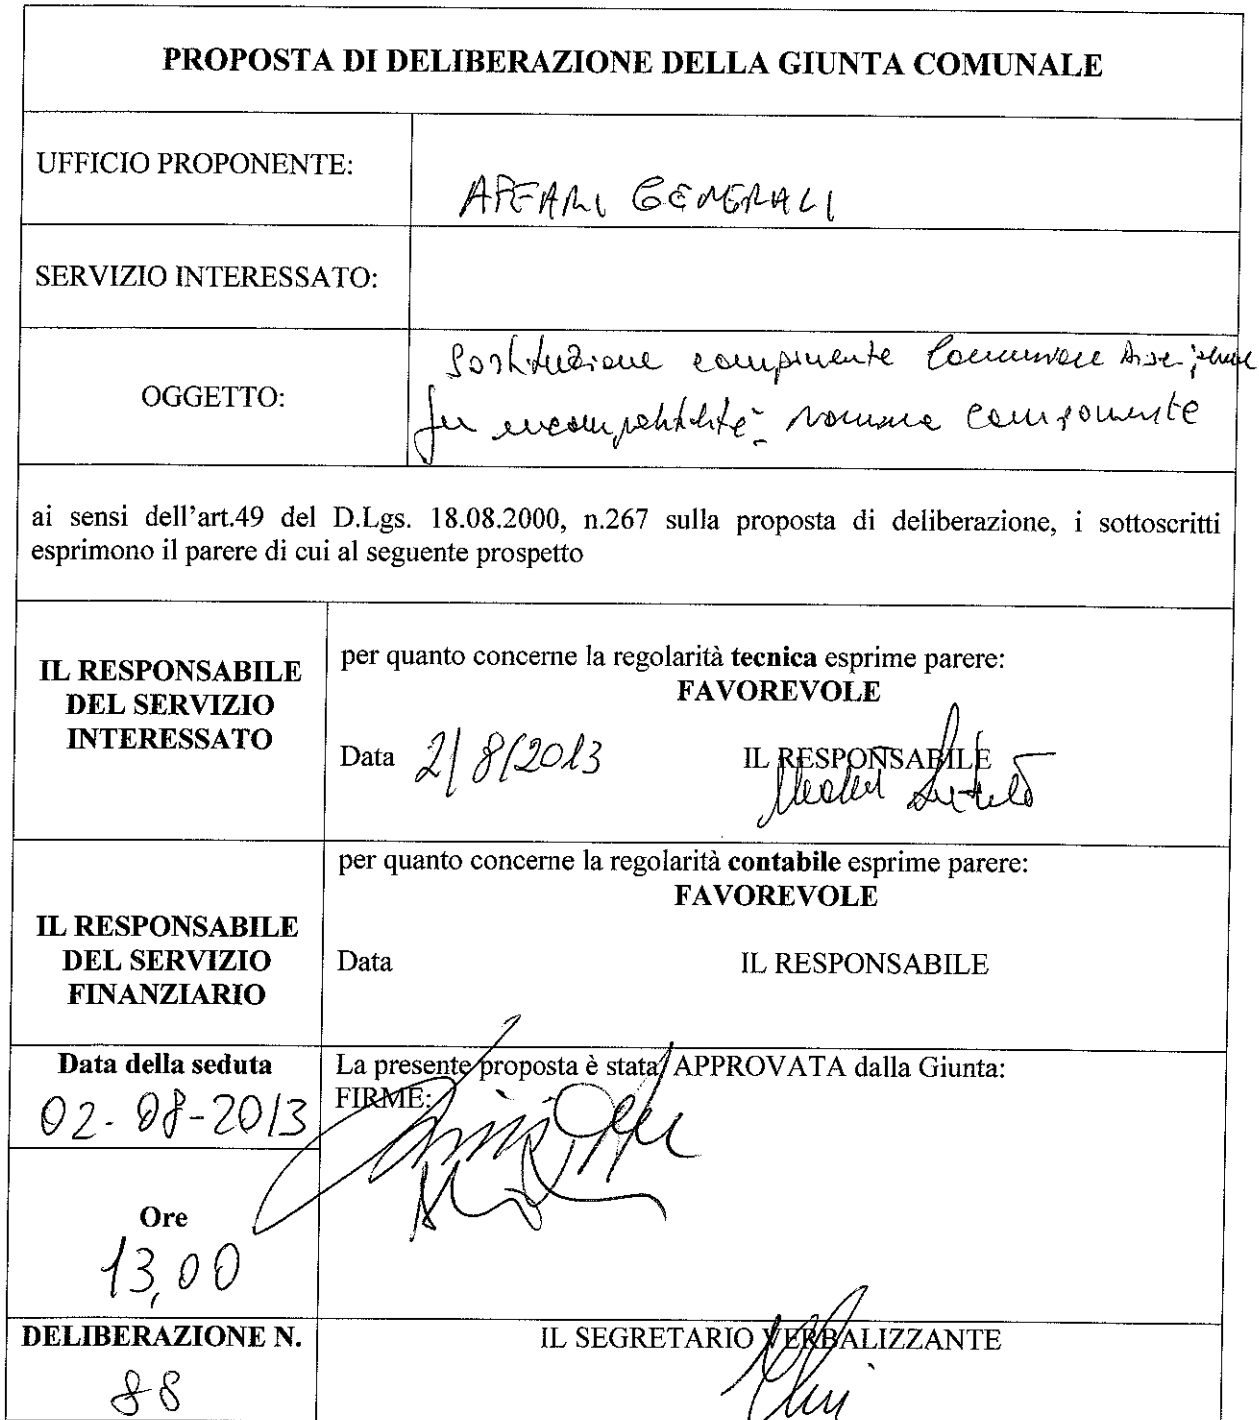 PROPOSTA DI DELIBERAZIONE DELLA GIUNTA COMUNALE
UFFICIO PROPONENTE:
AFFARI GENERALI
SERVIZIO INTERESSATO:
OGGETTO:
Sostituzione componente Commissione
per incompatibilità - nomina componente
ai sensi dell'art.49 del D.Lgs. 18.08.2000, n.267 sulla proposta di deliberazione, i sottoscritti
esprimono il parere di cui al seguente prospetto
IL RESPONSABILE
DEL SERVIZIO
INTERESSATO
per quanto concerne la regolarità tecnica esprime parere:
FAVOREVOLE
Data 2/8/2013 IL RESPONSABILE
IL RESPONSABILE
DEL SERVIZIO
FINANZIARIO
per quanto concerne la regolarità contabile esprime parere:
FAVOREVOLE
Data IL RESPONSABILE
Data della seduta
02-08-2013
La presente proposta è stata APPROVATA dalla Giunta:
FIRME:
Ore
13,00
DELIBERAZIONE N.
88
IL SEGRETARIO VERBALIZZANTE